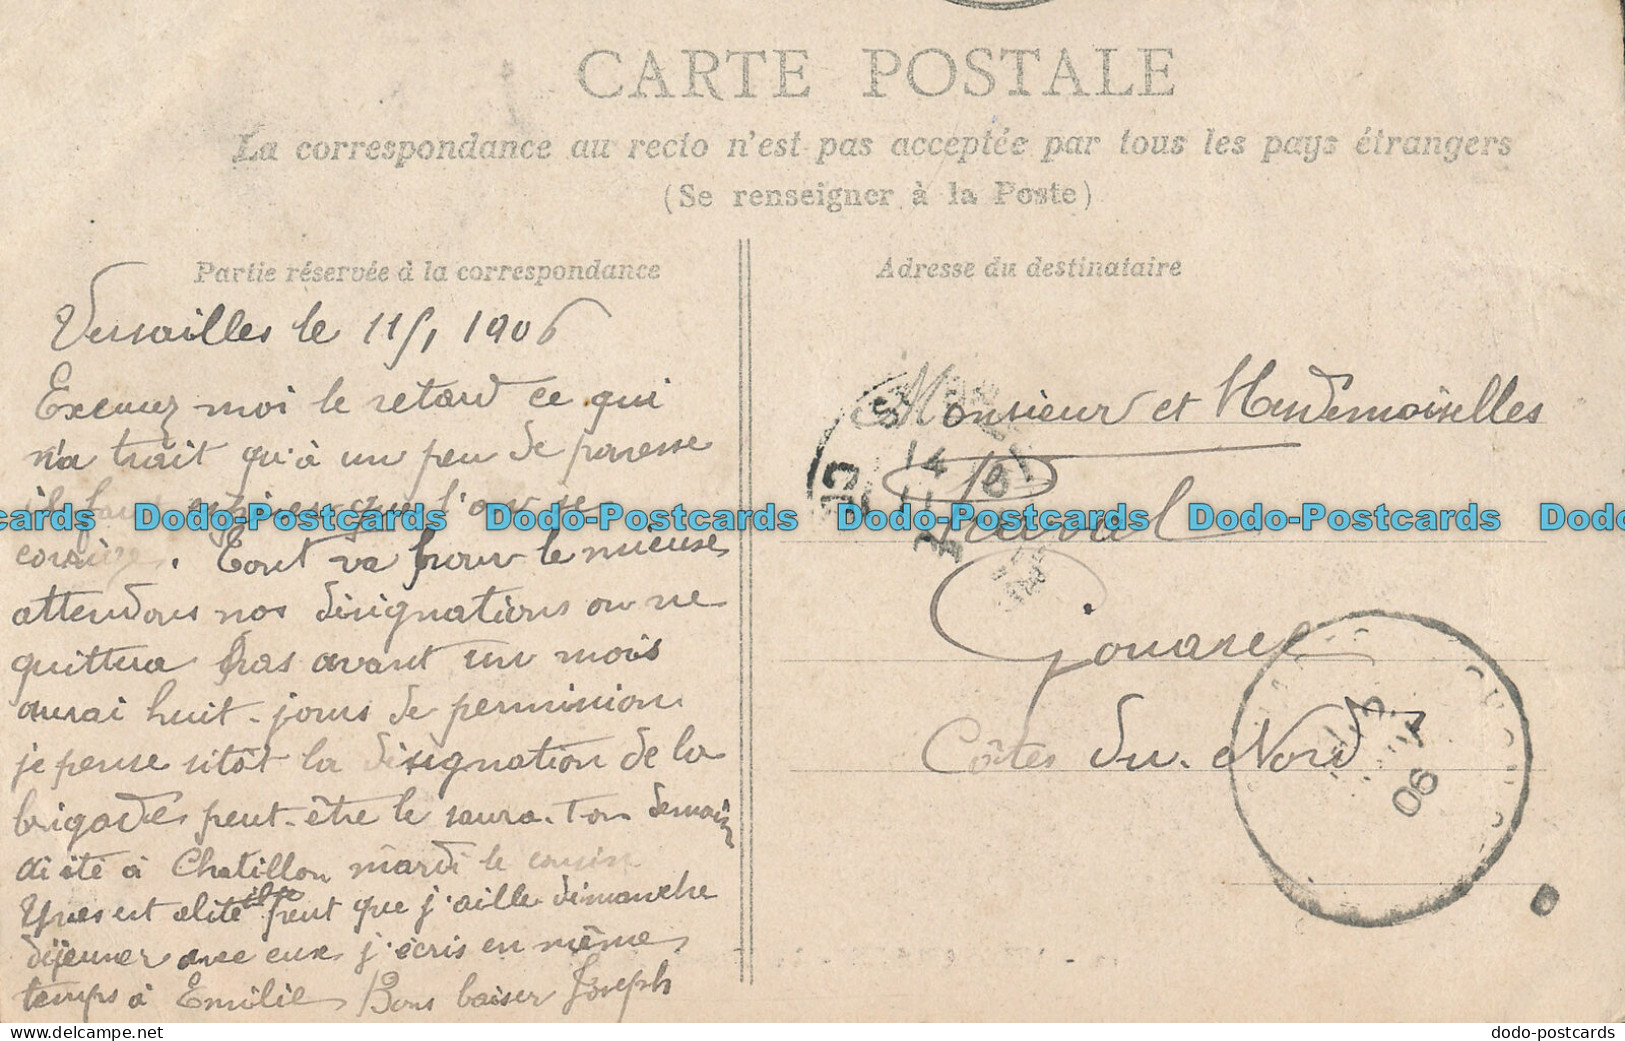 CARTE POSTALE
La correspondance au recto n'est pas acceptée par tous les pays étrangers
(Se renseigner à la Poste)
Partie réservée à la correspondance
Versailles le 11/1 1906
Excusez moi le retard ce qui
n'a trait qu'à un peu de paresse
il faut que l'on se
. Tout va pour le mieux
attendons nos désignations on ne
quittera pas avant un mois
aurai huit-jours de permission
je pense sitôt la désignation de la
brigade peut-être le saura-t-on demain
ai été à Chatillon mardi le cousin
Yves est alité il se peut que j'aille dimanche
déjeuner avec eux j'écris en même
temps à Emilie Bons baiser Joseph
Adresse du destinataire
Monsieur et Mesdemoiselles
Gouarec
Côtes du Nord
14
06
Dodo-Postcards Dodo-Postcards Dodo-Postcards Dodo-Postcards
dodo-postcards